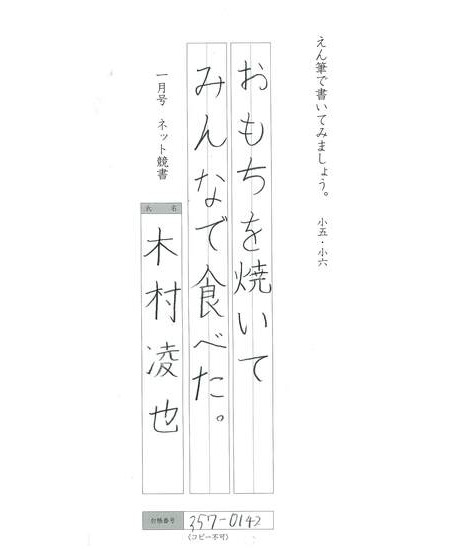 えん筆で書いてみましょう。 小五・小六
おもちを焼いて
みんなで食べた。
一月号 ネット競書
氏名
木村凌也
台帳番号 357-0142
(コピー不可)